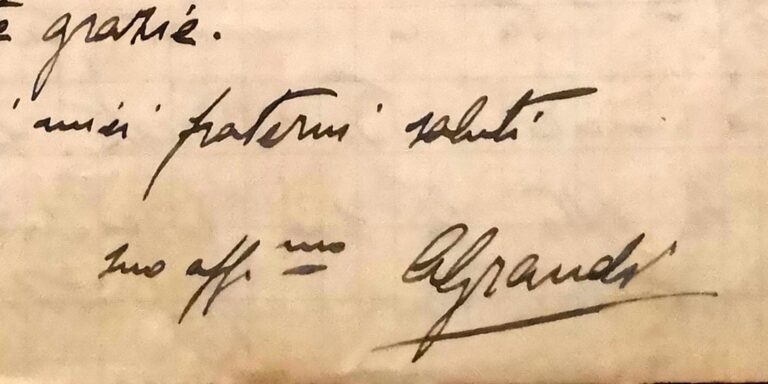 e grazie.
i miei fraterni saluti
suo aff.mo AGrandi